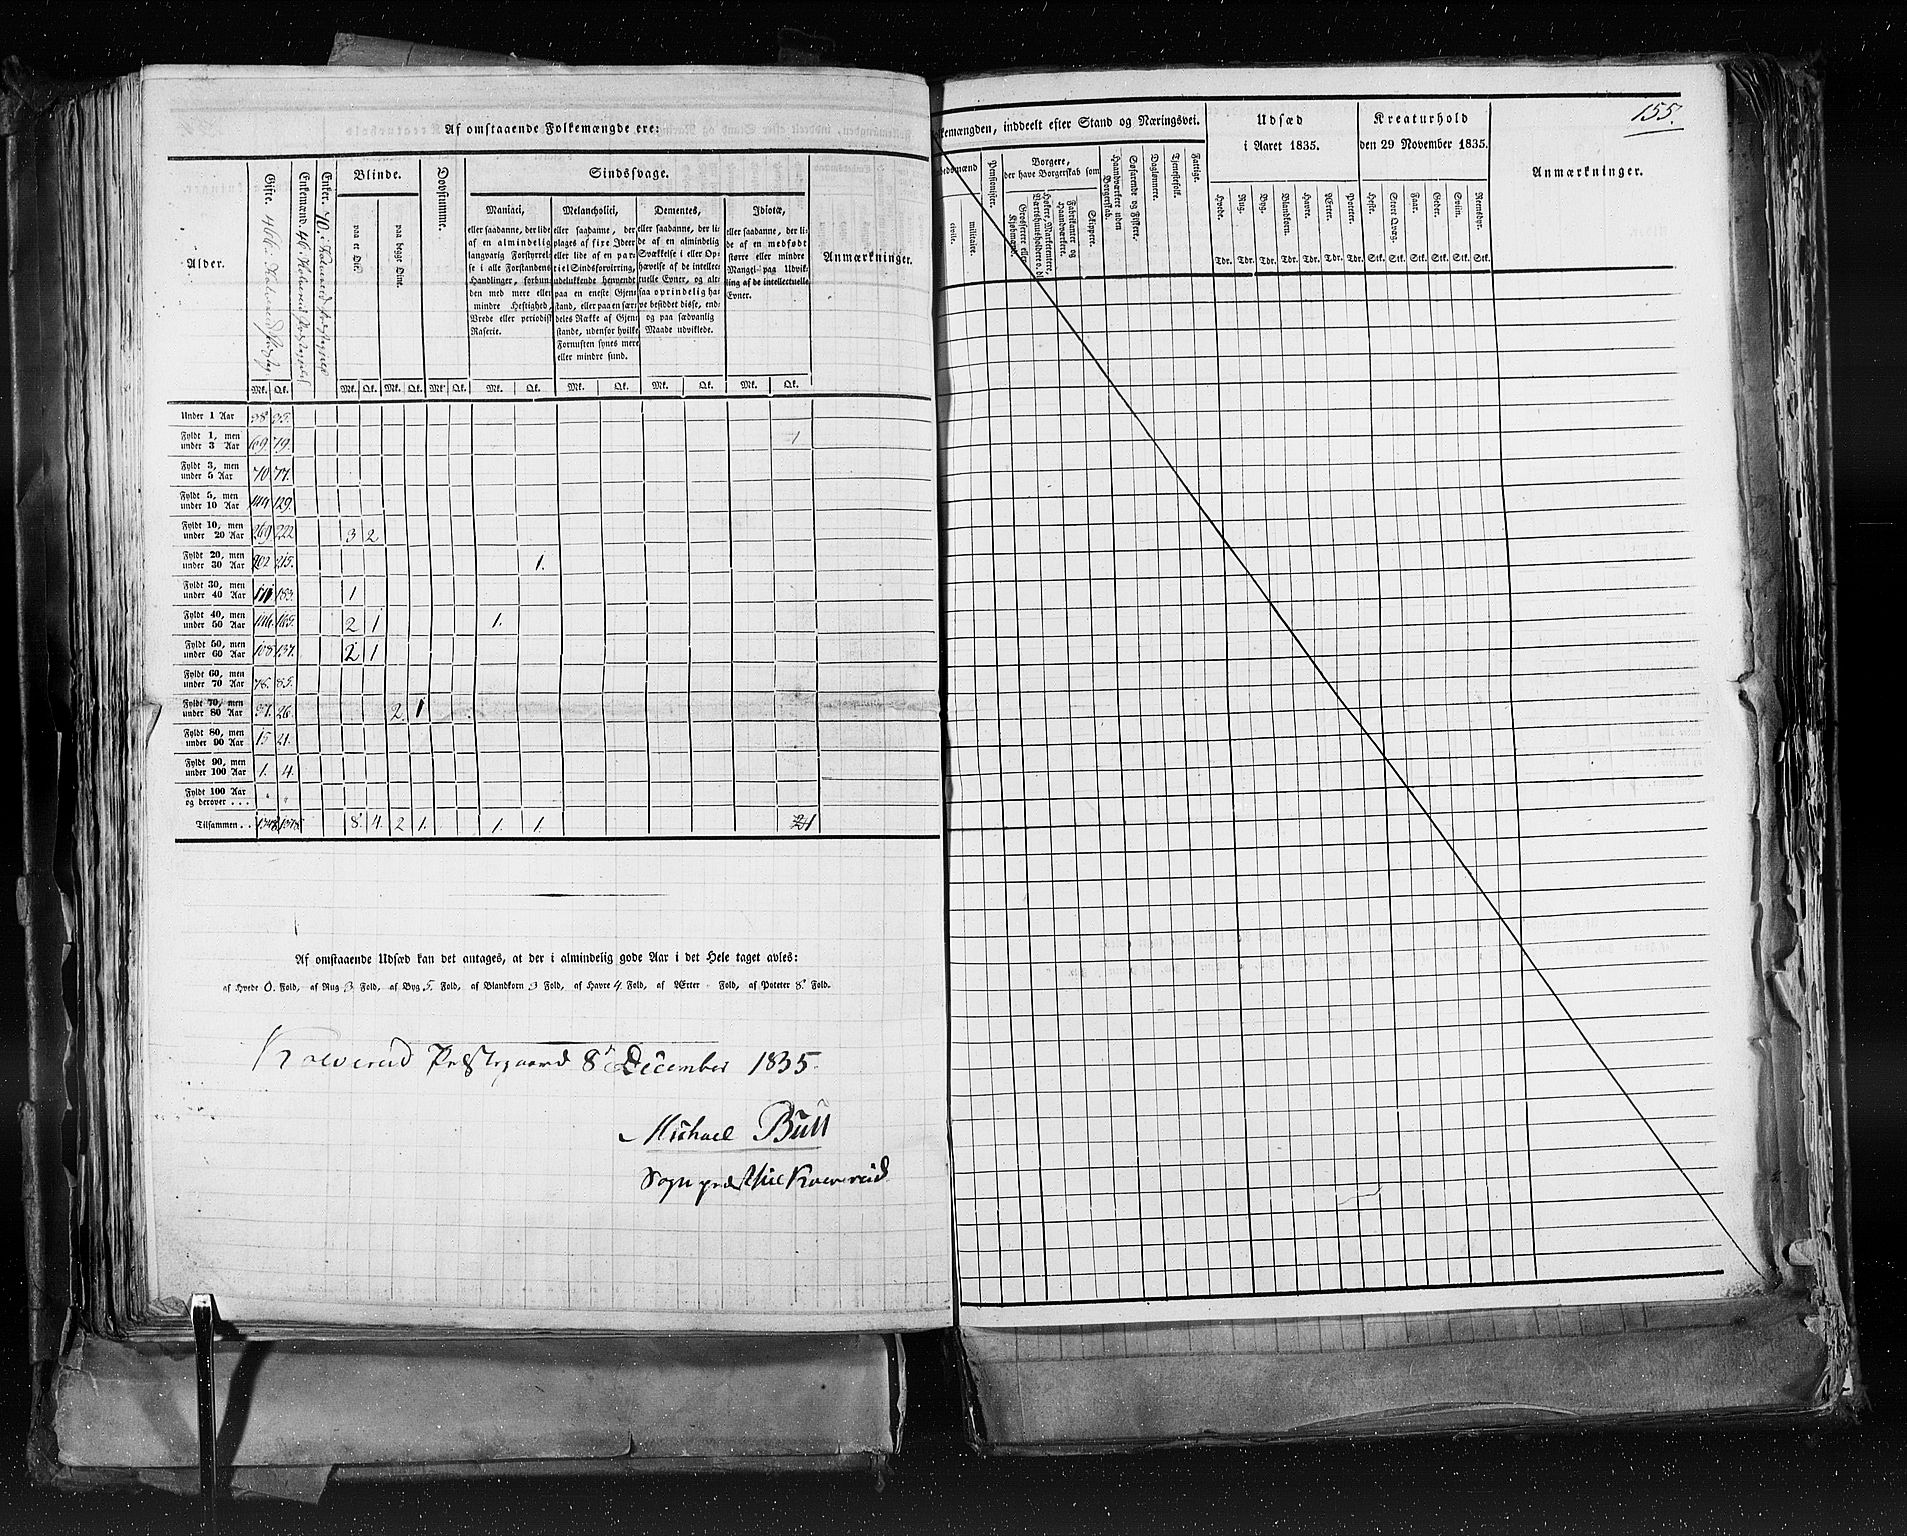 Af omstaaende Folkemængde ere:
Alder.
Gifte. 466 i Kolvereid Præstegj.
Enkemænd. 46 i Kolvereid Præstegjeld
Enker. 70 i Kolvereid Præstegjeld
Blinde.
paa et Øie.
paa begge Øine.
Døvstumme.
Sindssvage.
Maniaci,
eller saadanne, der lide
af en almindelig
langvarig Forstyrrel-
se i alle Forstandens
Handlinger, forbun-
den med mere eller
mindre Heftighed,
Vrede eller periodisk
Raserie.
Melancholici,
eller saadanne, der
plages af fixe Ideer
eller lide af en par-
tiel Sindsforvirring,
udelukkende henvendt
paa en eneste Gjen-
stand, eller paa en sær-
deles Række af Gjen-
stande, udenfor hvilke
Fornuften synes mere
eller mindre sund.
Dementes,
eller saadanne, der li-
de af en almindelig
Svækkelse i eller Op-
hævelse af de intellec-
tuelle Evner, og alt-
saa oprindelig ha-
ve besiddet disse, end-
og paa sædvanlig
Maade udviklede.
Idiotæ,
eller saadanne, der li-
de af en medfødt
større eller mindre
Mangel paa Udvik-
ling af de intellectuelle
Evner.
Anmærkninger.
Mk. Qk. Mk. Qk. Mk. Qk. Mk. Qk. Mk. Qk. Mk. Qk. Mk. Qk. Mk. Qk.
Under 1 Aar 38 35.
Fyldt 1, men
under 3 Aar 69. 79. 1
Fyldt 3, men
under 5 Aar 70 77.
Fyldt 5, men
under 10 Aar 144 129.
Fyldt 10, men
under 20 Aar 269 222 3 2
Fyldt 20, men
under 30 Aar 202 215. 1.
Fyldt 30, men
under 40 Aar 183. 1
Fyldt 40, men
under 50 Aar 146. 165. 2 1 1.
Fyldt 50, men
under 60 Aar 108 137. 2 1
Fyldt 60, men
under 70 Aar 78. 85.
Fyldt 70, men
under 80 Aar 37. 26. 2 1
Fyldt 80, men
under 90 Aar 15 21.
Fyldt 90, men
under 100 Aar 1. 4.
Fyldt 100 Aar
og derover . . . " "
Tilsammen . . 1378 8. 4. 2 1. 1. 1. 1
Af omstaaende Udsæd kan det antages, at der i almindelig gode Aar i det Hele taget avles:
af Hvede 0. Fold, af Rug 3 Fold, af Byg 5. Fold, af Blandkorn 3 Fold, af Havre 4 Fold, af Ærter - Fold, af Poteter 8 Fold.
Kolvereid Præstegaard 8de December 1835.
Michael Bull
Sognepræst til Kolvereid
155.
Folkemængden, inddeelt efter Stand og Næringsvei.
civile.
militaire.
Pensionister.
Borgere,
der have Borgerskab som
Grosserere eller Kjøbmænd.
Høkere, Marketentere, Værtshuusholdere o. dl.
Fabrikanter og Haandværkere.
Skippere.
Haandværkere uden Borgerskab.
Søfarende og Fiskere.
Daglønnere.
Tjenestefolk.
Fattige.
Udsæd
i Aaret 1835.
Hvede. Rug. Byg. Blandkorn. Havre. Ærter. Poteter.
Tdr. Tdr. Tdr. Tdr. Tdr. Tdr. Tdr.
Kreaturhold
den 29 November 1835.
Heste. Stort Qvæg. Faar. Geder. Sviin. Reensdyr.
Stk. Stk. Stk. Stk. Stk. Stk.
Anmærkninger.